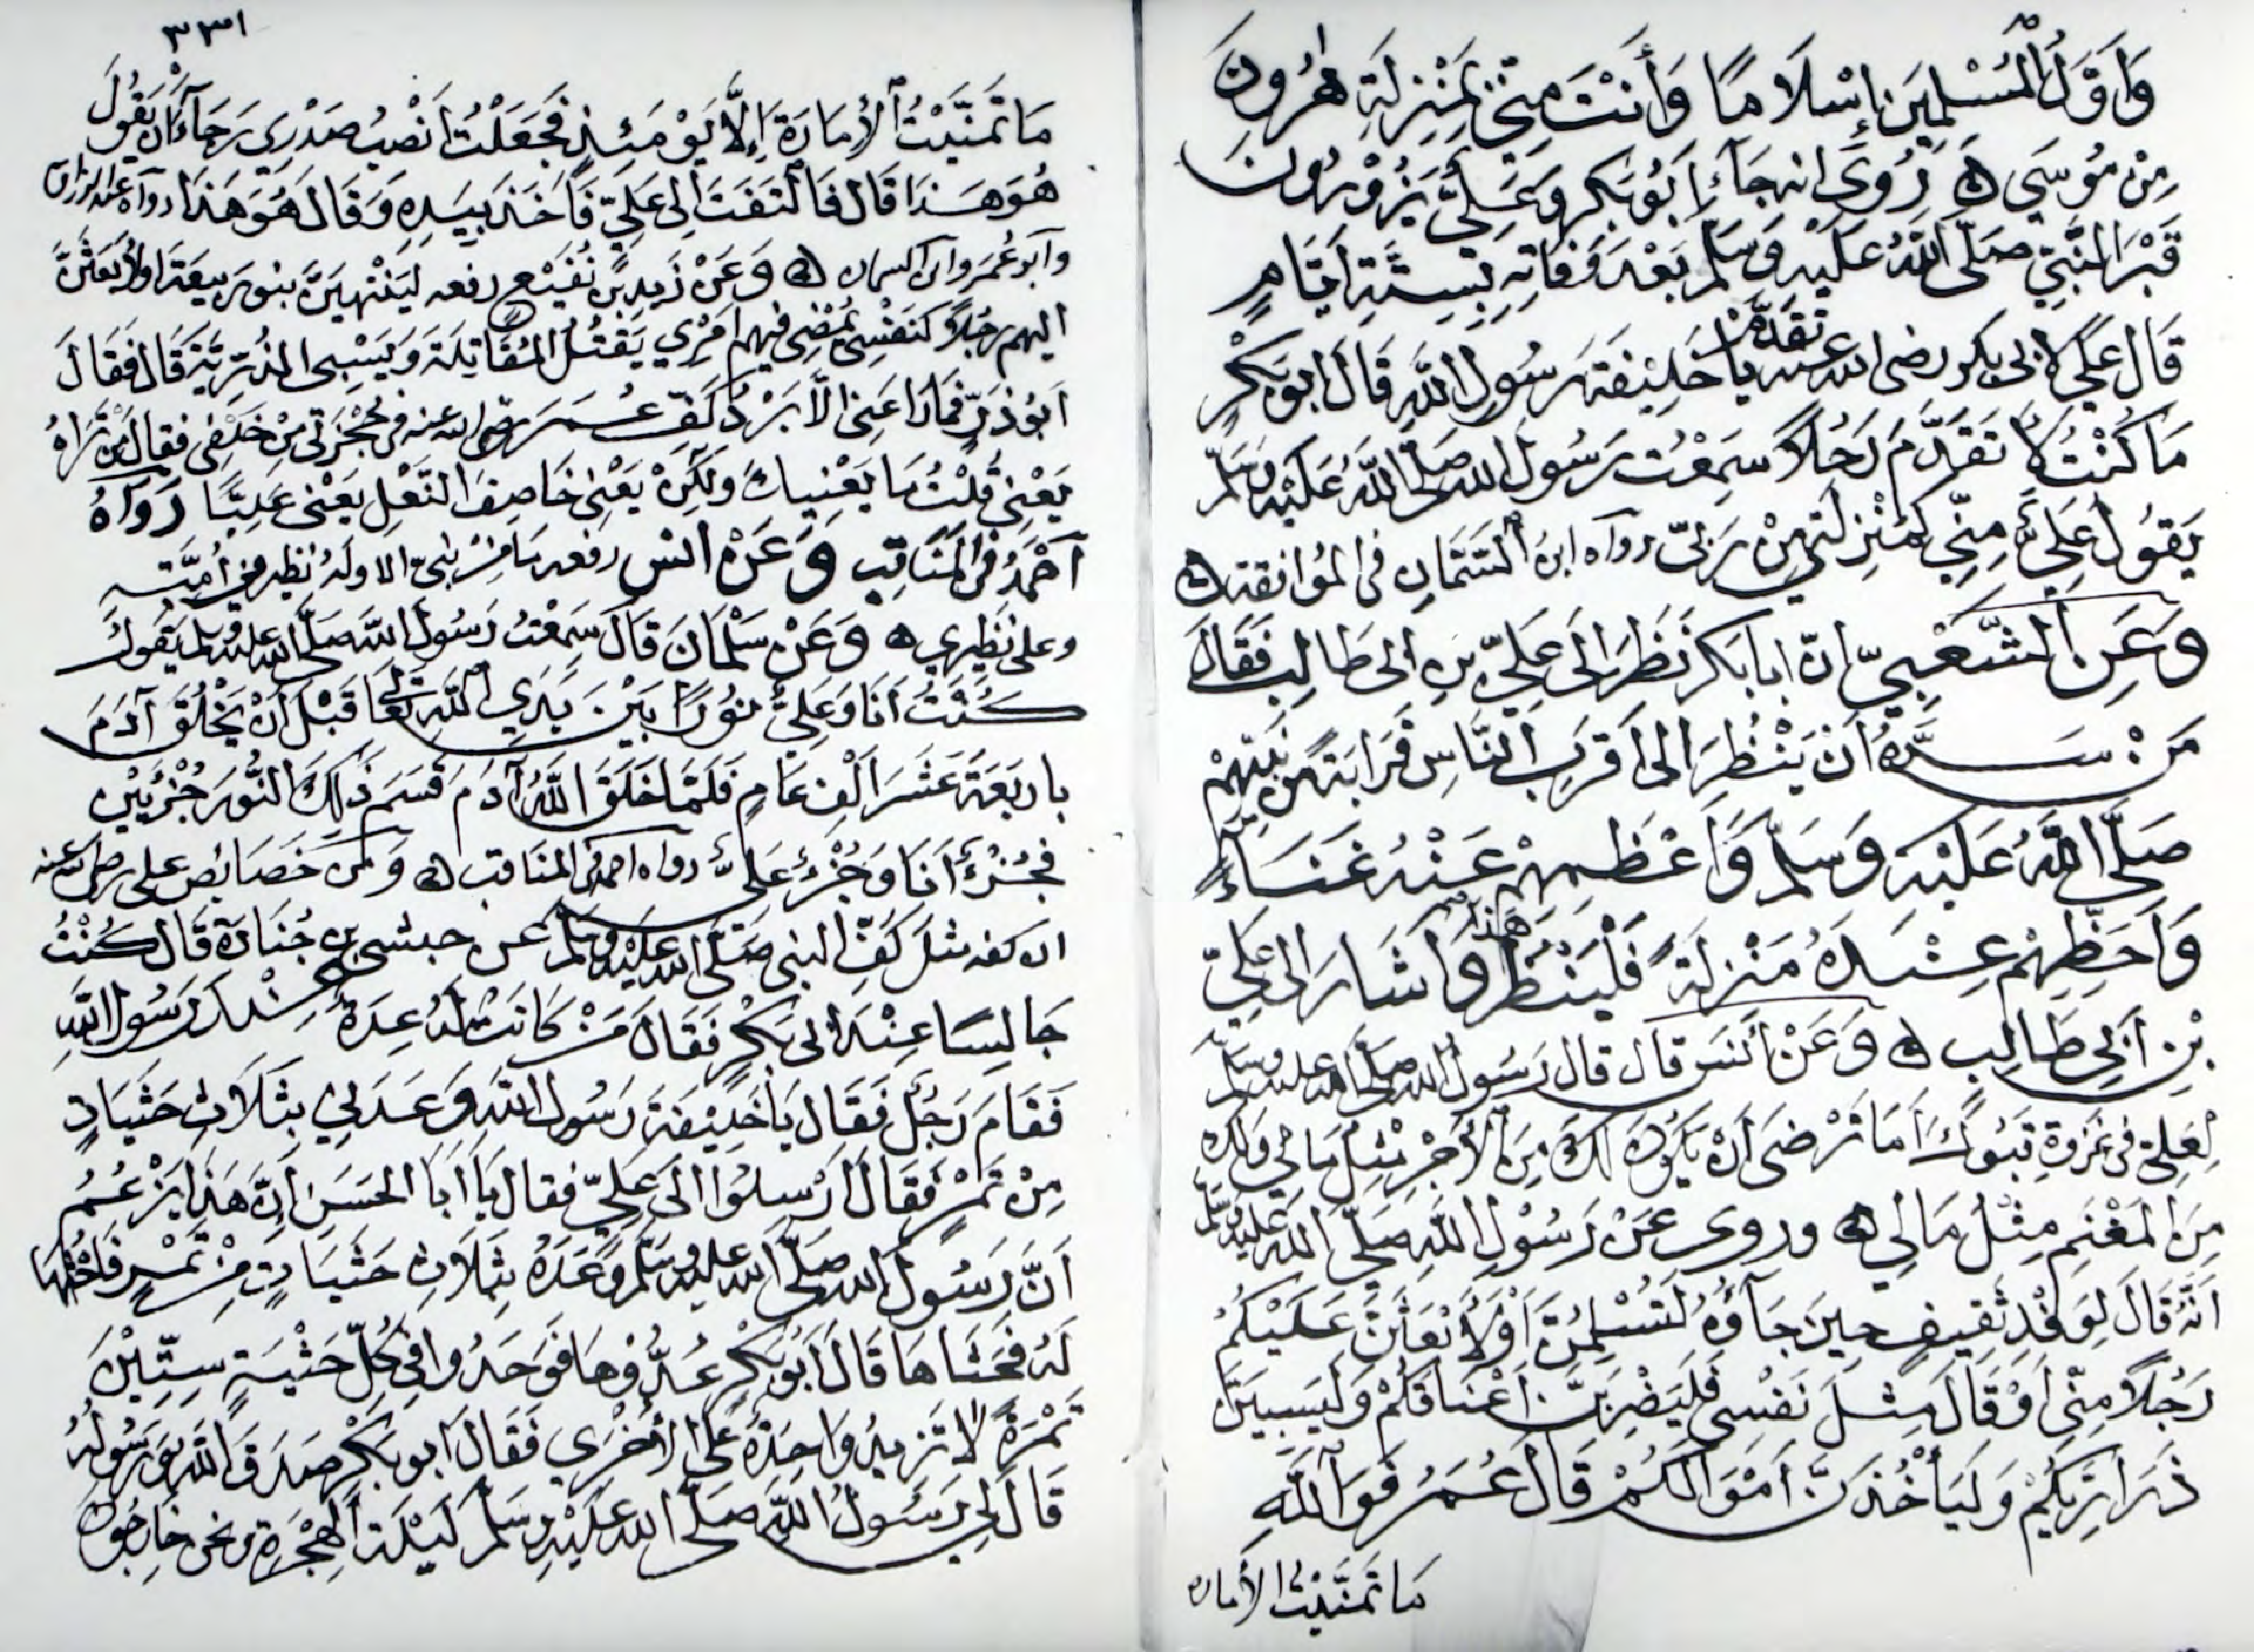 وَأَوَّلُ الْمُسْلِمِينَ إِسْلَامًا وَأَنْتَ مِنِّي بِمَنْزِلَةِ هٰرُونَ
مِنْ مُوسَى ه رُوِيَ انه جَآءَ أَبُو بَكْرٍ وَعَلِيٌّ يَزُوْرُونَ
قَبْرَ النَّبِيِّ صَلَّى اللَّهُ عَلَيْهِ وَسَلَّمَ بَعْدَ وَفَاتِهِ بِسِتَّةِ أَيَّامٍ
قَالَ عَلِيٌّ لابى بكر رضى الله عنه تَقَدَّمْ يا خَلِيْفَةَ رَسُولِ اللَّهِ قَالَ ابو بَكْرٍ
مَا كُنْتُ لِاَتَقَدَّمَ رَجُلًا سَمِعْت رَسُولَ الله صَلَّى اللَّهُ عَلَيْهِ وَسَلَّم
يَقُولُ عَلِيٌّ مِنِّي كَمَنْزِلَتِي مِنْ رَبِّى رواه ابنُ السَّمَّان فى الموافقة ه
وَعَنِ الشَّعْبِيِّ انّ ابا بَكر نَظَرَ إلَى عَلِيِّ بنِ ابى طَالِبٍ فَقَالَ
مَنْ سَرَّهُ أَنْ يَنْظُرَ الى أَقْرَبِ النَّاسِ قَرَابَةً مِن نَبِيِّهِمْ
صَلَّى اللَّهُ عَلَيْهِ وَسَلَّمَ وَأَعْظَمِهِمْ عَنْهُ غَنَاءً
وَأَحَظِّهِمْ عِنْدَهُ مَنْزِلَةً فَلْيَنْظُرْ هَذَا وَأَشَارَ الى عَلِيِّ
بْنِ أَبِي طَالِبٍ ه وَعَنْ أَنَسٍ قال قال رَسُولُ الله صَلَّى الله عليه وسلم
لِعَلِيّ فى غزوة تَبُوكَ أَمَا تَرْضَى أَنْ يَكُونَ لَكَ مِنَ الأَجْرِ مِثْلُ مَا لِي وَلَكَ
مِنَ الْمَغْنَمِ مِثْلُ مَا لِي ه وروى عَنْ رَسُوْلِ اللَّهِ صَلَّى اللَّه عَلَيْهِ وسَلَّم
أَنَّهُ قَالَ لِوَفْدِ ثَقِيفٍ حِينَ جَآؤُهُ لَتُسْلِمُنَّ أَوْ لَأَبْعَثَنَّ عَلَيْكُمْ
رَجُلًا مِنِّى أَوْ قَالَ مِثْلَ نَفْسِى فَلَيَضْرِبَنَّ أَعْنَاقَكُمْ وَلَيَسْبِيَنَّ
ذَرَارِيَّكُمْ وَلَيَأْخُذَنَّ أَمْوَالَكُمْ قَالَ عُمَرُ فَوَاللَّهِ
مَا تَمَنَّيْتُ الأماره
٣٣١
مَا تَمَنَّيْتُ الأَمَارَةَ إِلَّا يَوْمَئِذٍ فَجَعَلْتُ أَنْصُبُ صَدْرِى رَجَآءَ أَنْ يَقُولَ
هُوَ هَذَا قَالَ فَالْتَفَتَ الى عَلِيّ فَأَخَذَ بِيَدِهِ وَقَالَ هُوَ هَذَا رواه عبد الرزاق
وأبو عُمَرَ وابن السمان ه وَعَنْ زَيدِ بنِ نُفَيْعٍ رفعه لَيَنْتَهِيَنَّ بنو رَبيعَةَ اولأَبعَثَنَّ
اليهم رجُلًا كَنَفْسِى يُمْضِى فِيهِم امْرِي يَقْتُلُ الْمُقَاتِلَةَ وَيَسْبِى الذُّرِّيَّةَ قَالَ فَقَالَ
أَبُو ذَرٍّ فَمَا رَاعَنِى الَّا بَرْدُ كَفِّ عُمَرَ رضى الله عنه فى حُجْزَتِى مِنْ خَلْفِى فقالَ مَنْ تَرَاهُ
يَعْنِى قُلْتُ مَا يَعْنِيكَ وَلَكِنْ يَعْنِى خَاصِفَ النَّعْلِ يَعْنِى عَلِيًّا رَوَاهُ
أَحْمَدُ فِى الْمَنَاقِبِ وَعَنْ انس رفعه مَا مِنْ نبىّ الا ولَهُ نظير فى أُمَّتِهِ
وعلى نَظِيرِى ه وَعَنْ سَلْمَانَ قَالَ سَمِعْتُ رَسُولَ اللَّه صَلَّى الله عليه وسلم يَقُولُ
كُنْتُ أَنَا وَعَلِيٌّ نُورًا بَيْنَ يَدَيِ اللَّهِ تَعَالَى قَبْلَ أَنْ يَخْلُقَ آدَمَ
بِأربَعَةَ عَشَرَ أَلْفَ عَامٍ فَلَمَّا خَلَقَ اللَّهُ آدَمَ قَسَمَ ذَلِكَ النُّورَ جُزْئَيْنِ
فَجُزْءٌ أَنَا وَجُزْءٌ عَلِىٌّ رواه احمد فى المنَاقب ه وَمِنْ خَصَائِصِ على رضى الله عنه
ان كفه مثل كَفِّ النبى صَلَّى الله عَلَيْهِ وسلم عن حبشى بن جُنَادَةَ قَالَ كُنْتُ
جَالِسًا عِنْدَ ابى بَكْرٍ فَقَالَ مَنْ كَانَتْ لَهُ عِدَةٌ عِنْدَ رَسُولِ اللَّهِ
فَقَامَ رَجُلٌ فَقَالَ يَا خَلِيْفَةَ رَسُولِ اللَّهِ وَعَدَنِي بِثَلَاثِ حَثَيَاتٍ
مِنْ تَمْرٍ فَقَالَ أَرْسِلُوا الَى عَلِيّ فقال يَا أَبَا الحَسَنِ إِنَّ هَذَا يَزْعُمُ
أَنَّ رَسُولَ الله صَلَّى الله عليه وسَلَّمَ وَعَدَهُ بِثَلَاثِ حَثَيَاتٍ مِنْ تَمْرٍ فَاحْثُهَا
لَهُ فَحَثَاهَا قَالَ أَبُو بَكْرٍ عُدُّوْهَا فَوَجَدُوا فِى كُلِّ حَثْيَةٍ سِتِّيْنَ
تَمْرَةً لا تَزِيدُ وَاحِدَةٌ عَلَى الأُخْرَى فَقَالَ أبو بَكْرٍ صَدَقَ اللَّهُ وَرَسُولُهُ
قَالَ لِى رَسُولُ اللَّهِ صَلَّى الله عَلَيْهِ وسَلَّمَ لَيْلَةَ الْهِجْرَةِ ونحن خَارِجُونَ